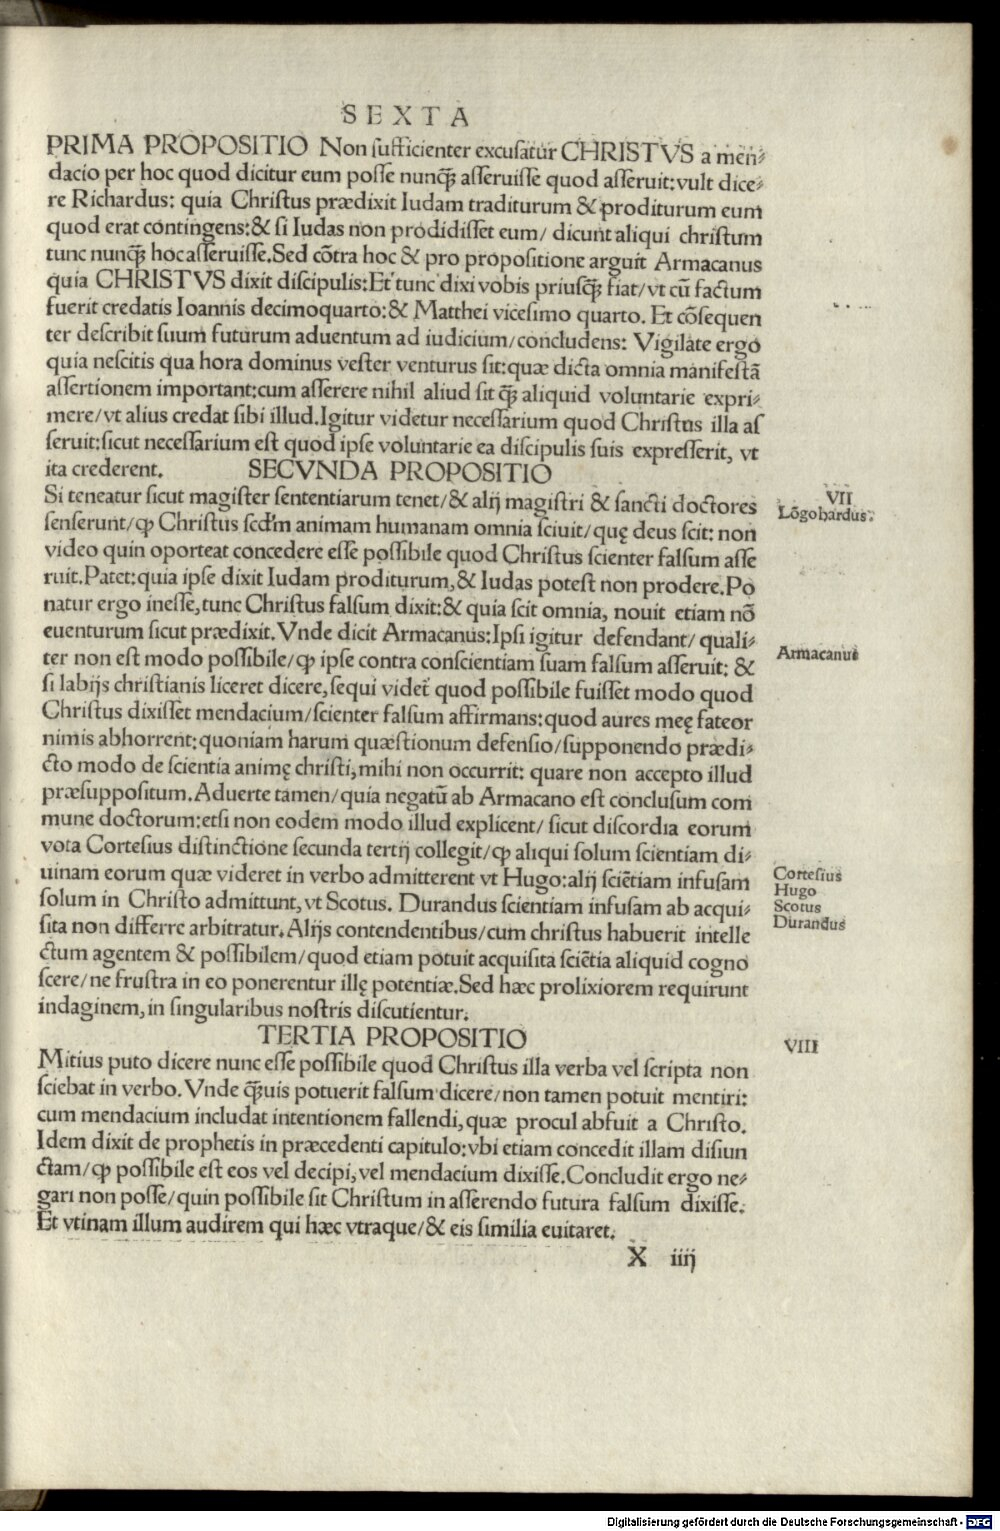 SEXTA
PRIMA PROPOSITIO Non ſufficienter excuſatur CHRISTVS a men⸗
dacio per hoc quod dicitur eum poſſe nunq̃ aſſeruiſſe quod aſſeruit: vult dice⸗
re Richardus: quia Chriſtus prædixit Iudam traditurum & proditurum eum
quod erat contingens: & ſi Iudas non prodidiſſet eum/ dicunt aliqui chriſtum
tunc nunq̃ hoc aſſeruiſſe. Sed cõtra hoc & pro propoſitione arguit Armacanus
quia CHRISTVS dixit diſcipulis: Et tunc dixi vobis priuſq̃ fiat/ vt cũ factum
fuerit credatis Ioannis decimoquarto: & Matthei viceſimo quarto. Et cõſequen
ter deſcribit ſuum futurum aduentum ad iudicium/ concludens: Vigilate ergo
quia neſcitis qua hora dominus veſter venturus ſit: quæ dicta omnia manifeſtã
aſſertionem important: cum aſſerere nihil aliud ſit q̃ aliquid voluntarie expri⸗
mere/ vt alius credat ſibi illud. Igitur videtur neceſſarium quod Chriſtus illa aſ
ſeruit: ſicut neceſſarium eſt quod ipſe voluntarie ea diſcipulis ſuis expreſſerit, vt
ita crederent. SECVNDA PROPOSITIO
Si teneatur ſicut magiſter ſententiarum tenet/ & alij magiſtri & ſancti doctores
VII
Lõgobardus.
ſenſerunt/ ꝙ Chriſtus ſcd'm animam humanam omnia ſciuit/ quę deus ſcit: non
video quin oporteat concedere eſſe poſſibile quod Chriſtus ſcienter falſum aſſe
ruit. Patet: quia ipſe dixit Iudam proditurum, & Iudas poteſt non prodere. Po
natur ergo ineſſe, tunc Chriſtus falſum dixit: & quia ſcit omnia, nouit etiam nõ
euenturum ſicut prædixit. Vnde dicit Armacanus: Ipſi igitur defendant/ quali⸗
ter non eſt modo poſſibile/ ꝙ ipſe contra conſcientiam ſuam falſum aſſeruit: &
Armacanus
ſi labijs chriſtianis liceret dicere, ſequi videt̃ quod poſſibile fuiſſet modo quod
Chriſtus dixiſſet mendacium/ ſcienter falſum affirmans: quod aures meę fateor
nimis abhorrent: quoniam harum quæſtionum defenſio/ ſupponendo prædi⸗
cto modo de ſcientia animę chriſti, mihi non occurrit: quare non accepto illud
præſuppoſitum. Aduerte tamen/ quia negatũ ab Armacano eſt concluſum com
mune doctorum: etſi non eodem modo illud explicent/ ſicut diſcordia eorum
vota Corteſius diſtinctione ſecunda tertij collegit/ ꝙ aliqui ſolum ſcientiam di⸗
uinam eorum quæ videret in verbo admitterent vt Hugo: alij ſciẽtiam infuſam
ſolum in Chriſto admittunt, vt Scotus. Durandus ſcientiam infuſam ab acqui⸗
ſita non differre arbitratur. Alijs contendentibus/ cum chriſtus habuerit intelle
Corteſius
Hugo
Scotus
Durandus
ctum agentem & poſſibilem/ quod etiam potuit acquiſita ſciẽtia aliquid cogno
ſcere/ ne fruſtra in eo ponerentur illę potentiæ. Sed hæc prolixiorem requirunt
indaginem, in ſingularibus noſtris diſcutientur.
TERTIA PROPOSITIO
VIII
Mitius puto dicere nunc eſſe poſſibile quod Chriſtus illa verba vel ſcripta non
ſciebat in verbo. Vnde q̃uis potuerit falſum dicere/ non tamen potuit mentiri:
cum mendacium includat intentionem fallendi, quæ procul abfuit a Chriſto.
Idem dixit de prophetis in præcedenti capitulo: vbi etiam concedit illam diſiun
ctam/ ꝙ poſſibile eſt eos vel decipi, vel mendacium dixiſſe. Concludit ergo ne⸗
gari non poſſe/ quin poſſibile ſit Chriſtum in aſſerendo futura falſum dixiſſe.
Et vtinam illum audirem qui hæc vtraque/ & eis ſimilia euitaret.
X iiij
Digitalisierung gefördert durch die Deutsche Forschungsgemeinschaft - DFG